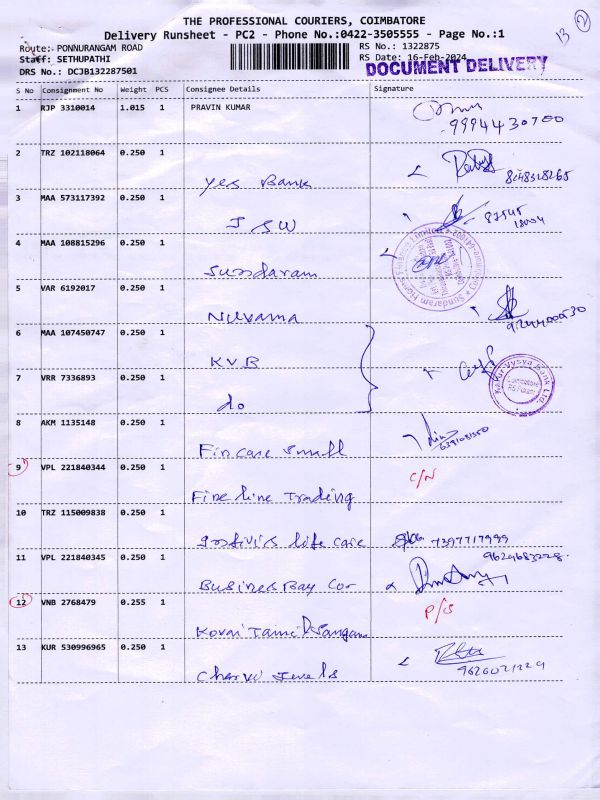 THE PROFESSIONAL COURIERS, COIMBATORE
Delivery Runsheet - PC2 - Phone No.:0422-3505555 - Page No.:1
13 2
Route: PONNURANGAM ROAD
RS No.: 1322875
Staff: SETHUPATHI
RS Date: 16-Feb-2024
DRS No.: DCJB132287501
DOCUMENT DELIVERY
S No Consignment No Weight PCS Consignee Details Signature
1 RJP 3310014 1.015 1 PRAVIN KUMAR
9994430700
2 TRZ 102118064 0.250 1
Yes Bank 8248318265
3 MAA 573117392 0.250 1
JSW
4 MAA 108815296 0.250 1
Sundaram
5 VAR 6192017 0.250 1
Nuvama
6 MAA 107450747 0.250 1
KVB
7 VRR 7336893 0.250 1
do
Karur Vysya Bank Ltd.
Coimbatore
RS Puram
8 AKM 1135148 0.250 1
Fincare Small
9 VPL 221840344 0.250 1
C/N
Fine line Trading
10 TRZ 115009838 0.250 1
life care 7397717999
11 VPL 221840345 0.250 1
9629683228
Busines Bay Cor
12 VNB 2768479 0.255 1
P/S
Kovai Tamil Sangam
13 KUR 530996965 0.250 1
Charvi Jewels 9626021229